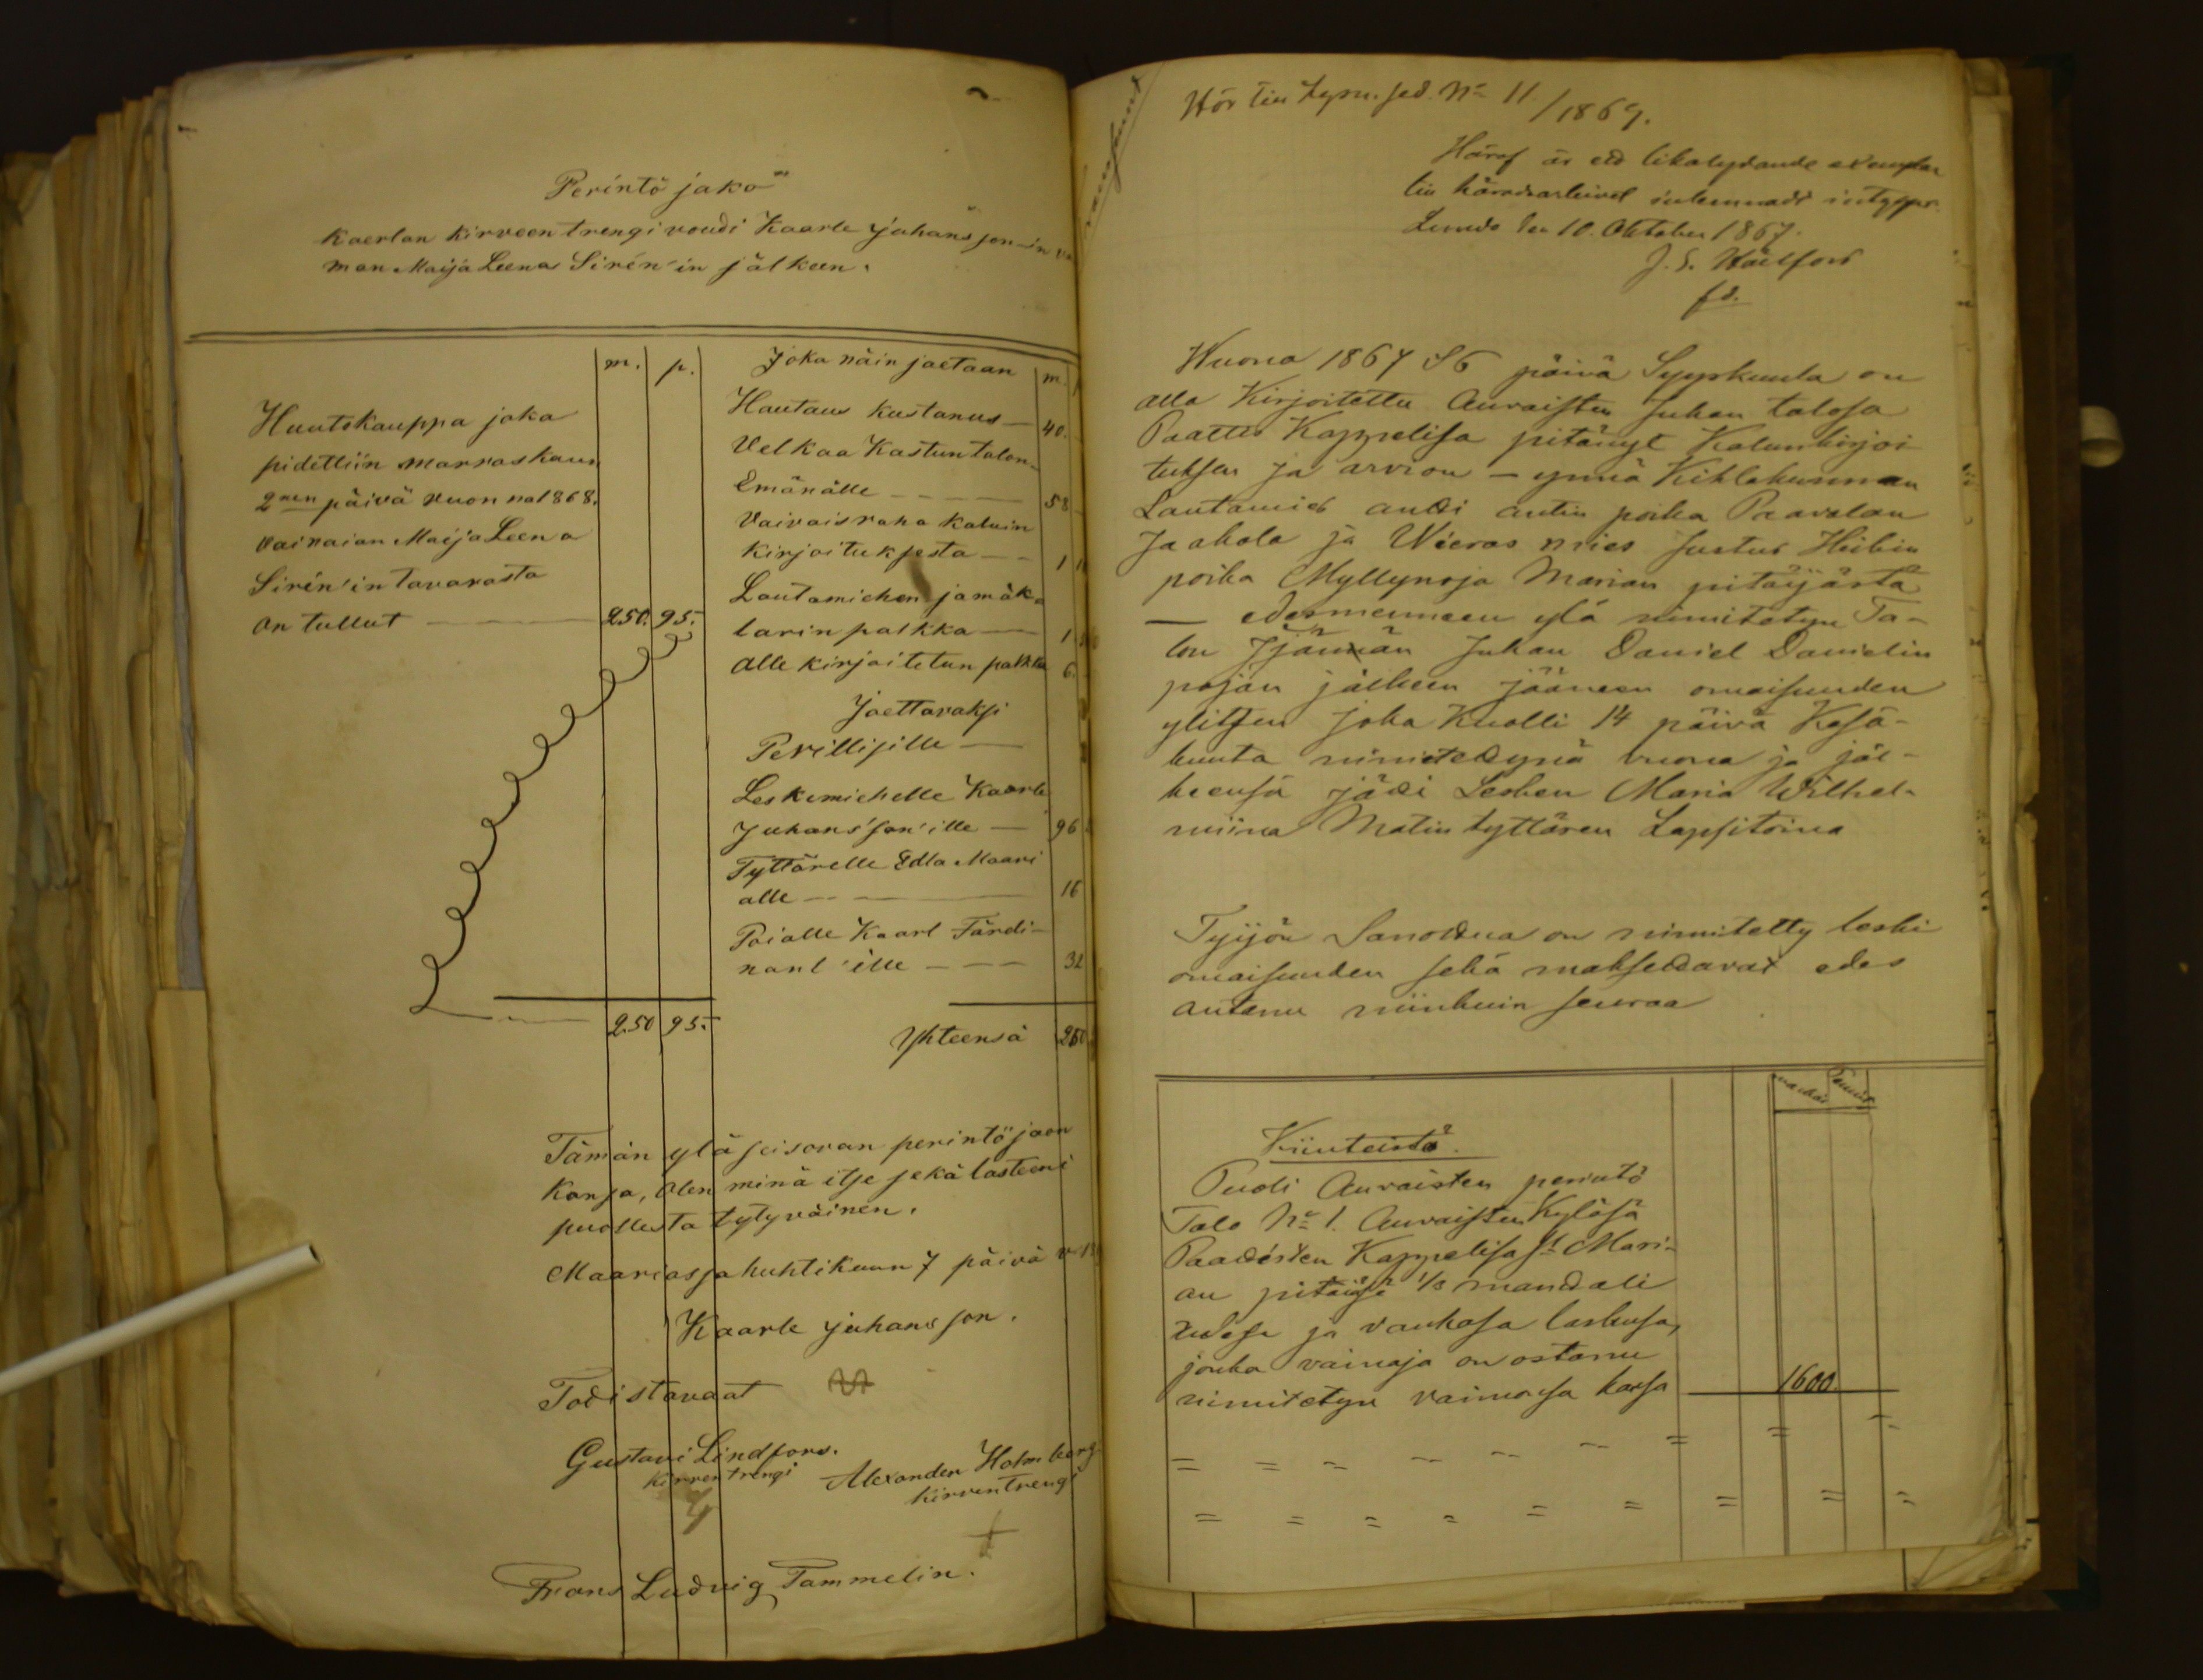 Perintö jako
Kaerlan Kirveen trengi voudi Kaarle Juhansson-in
man Maija Leena Sirén'in jälkeen.
m. p.
Huutokauppa joka
pidettiin marraskuun
2nen päivä vuonna 1868.
vainaian Maija Leena
Sirén'in tavarasta
on tullut — 250. 95.
250 95.
Joka näin jaetaan m.
Hautaus kustanus — 40.
Velkaa Kastun talon
Emänälle — 58
Vaivaisraha kaluin
kirjoituksesta — 1
Lautamiehen ja mäk
larin palkka — 1
alle kirjoitetun palkka 6.
Jaettavaksi
Perillisille —
Leskimiehelle Kaarle
Juhans'son'ille — 96
Tyttärelle Edla Maari
alle — 16
Poialle Kaarl Färdi-
nant'ille — 32
Yhteensä 250
Tämän ylä seisovan perintö jaon
Kansa, Olen minä itse sekä lasteeni
puollesta tytyväinen.
Maariassa huhtikuun 7 päivä
Kaarle Juhansson.
Todistavaat
Gustavi Lindfors.
Kirventrengi
Alexander Holmberg
Kirventrengi
Frans Ludvig Tammelin.
No 11/1867.
Häraf är ett likalydande exemplar
till häradsarkivet inlemnadt intygar
Lundo den 10. Oktober 1867.
Wuona 1867 S6 päivä Syyskuuta on
alla Kirjoitettu Auraisten Juhan talosa
Paattis Kappelisa pitänyt Kalunkirjoi-
tuksen ja arvion — ynnä Kihlakunnan
Lautamies andi antin poika Paavolan
Jaakola ja Wieras mies Justus Heikin
poika Myllynoja Marian pitäjästä
— edesmenneen ylä nimitetyn Ta-
lon Isännän Juhan Daniel Danielin
pojan jälkeen jääneen omaisuuden
ylitsen joka Kuolli 14 päivä Kesä-
kuuta nimitetdynä vuona ja jäl-
keensä jädi Lesken Maria Wilhel-
miina Matin tyttären Lapsitoina
Tyijön Sanottua on nimitetty leski
omaisuuden sekä maksettavat edes
antanu niinkuin seuraa
Kiinteistö.
Puoli Auraisten perintö
Talo No 1. Auraisten Kylösä
Paadisten Kappelisa St Mari-
an pitäjsä 1/3 mandali
ja vankasa laskusa,
jonka vainaja on ostanu
nimitetyn vaimonsa kansa — 1600.